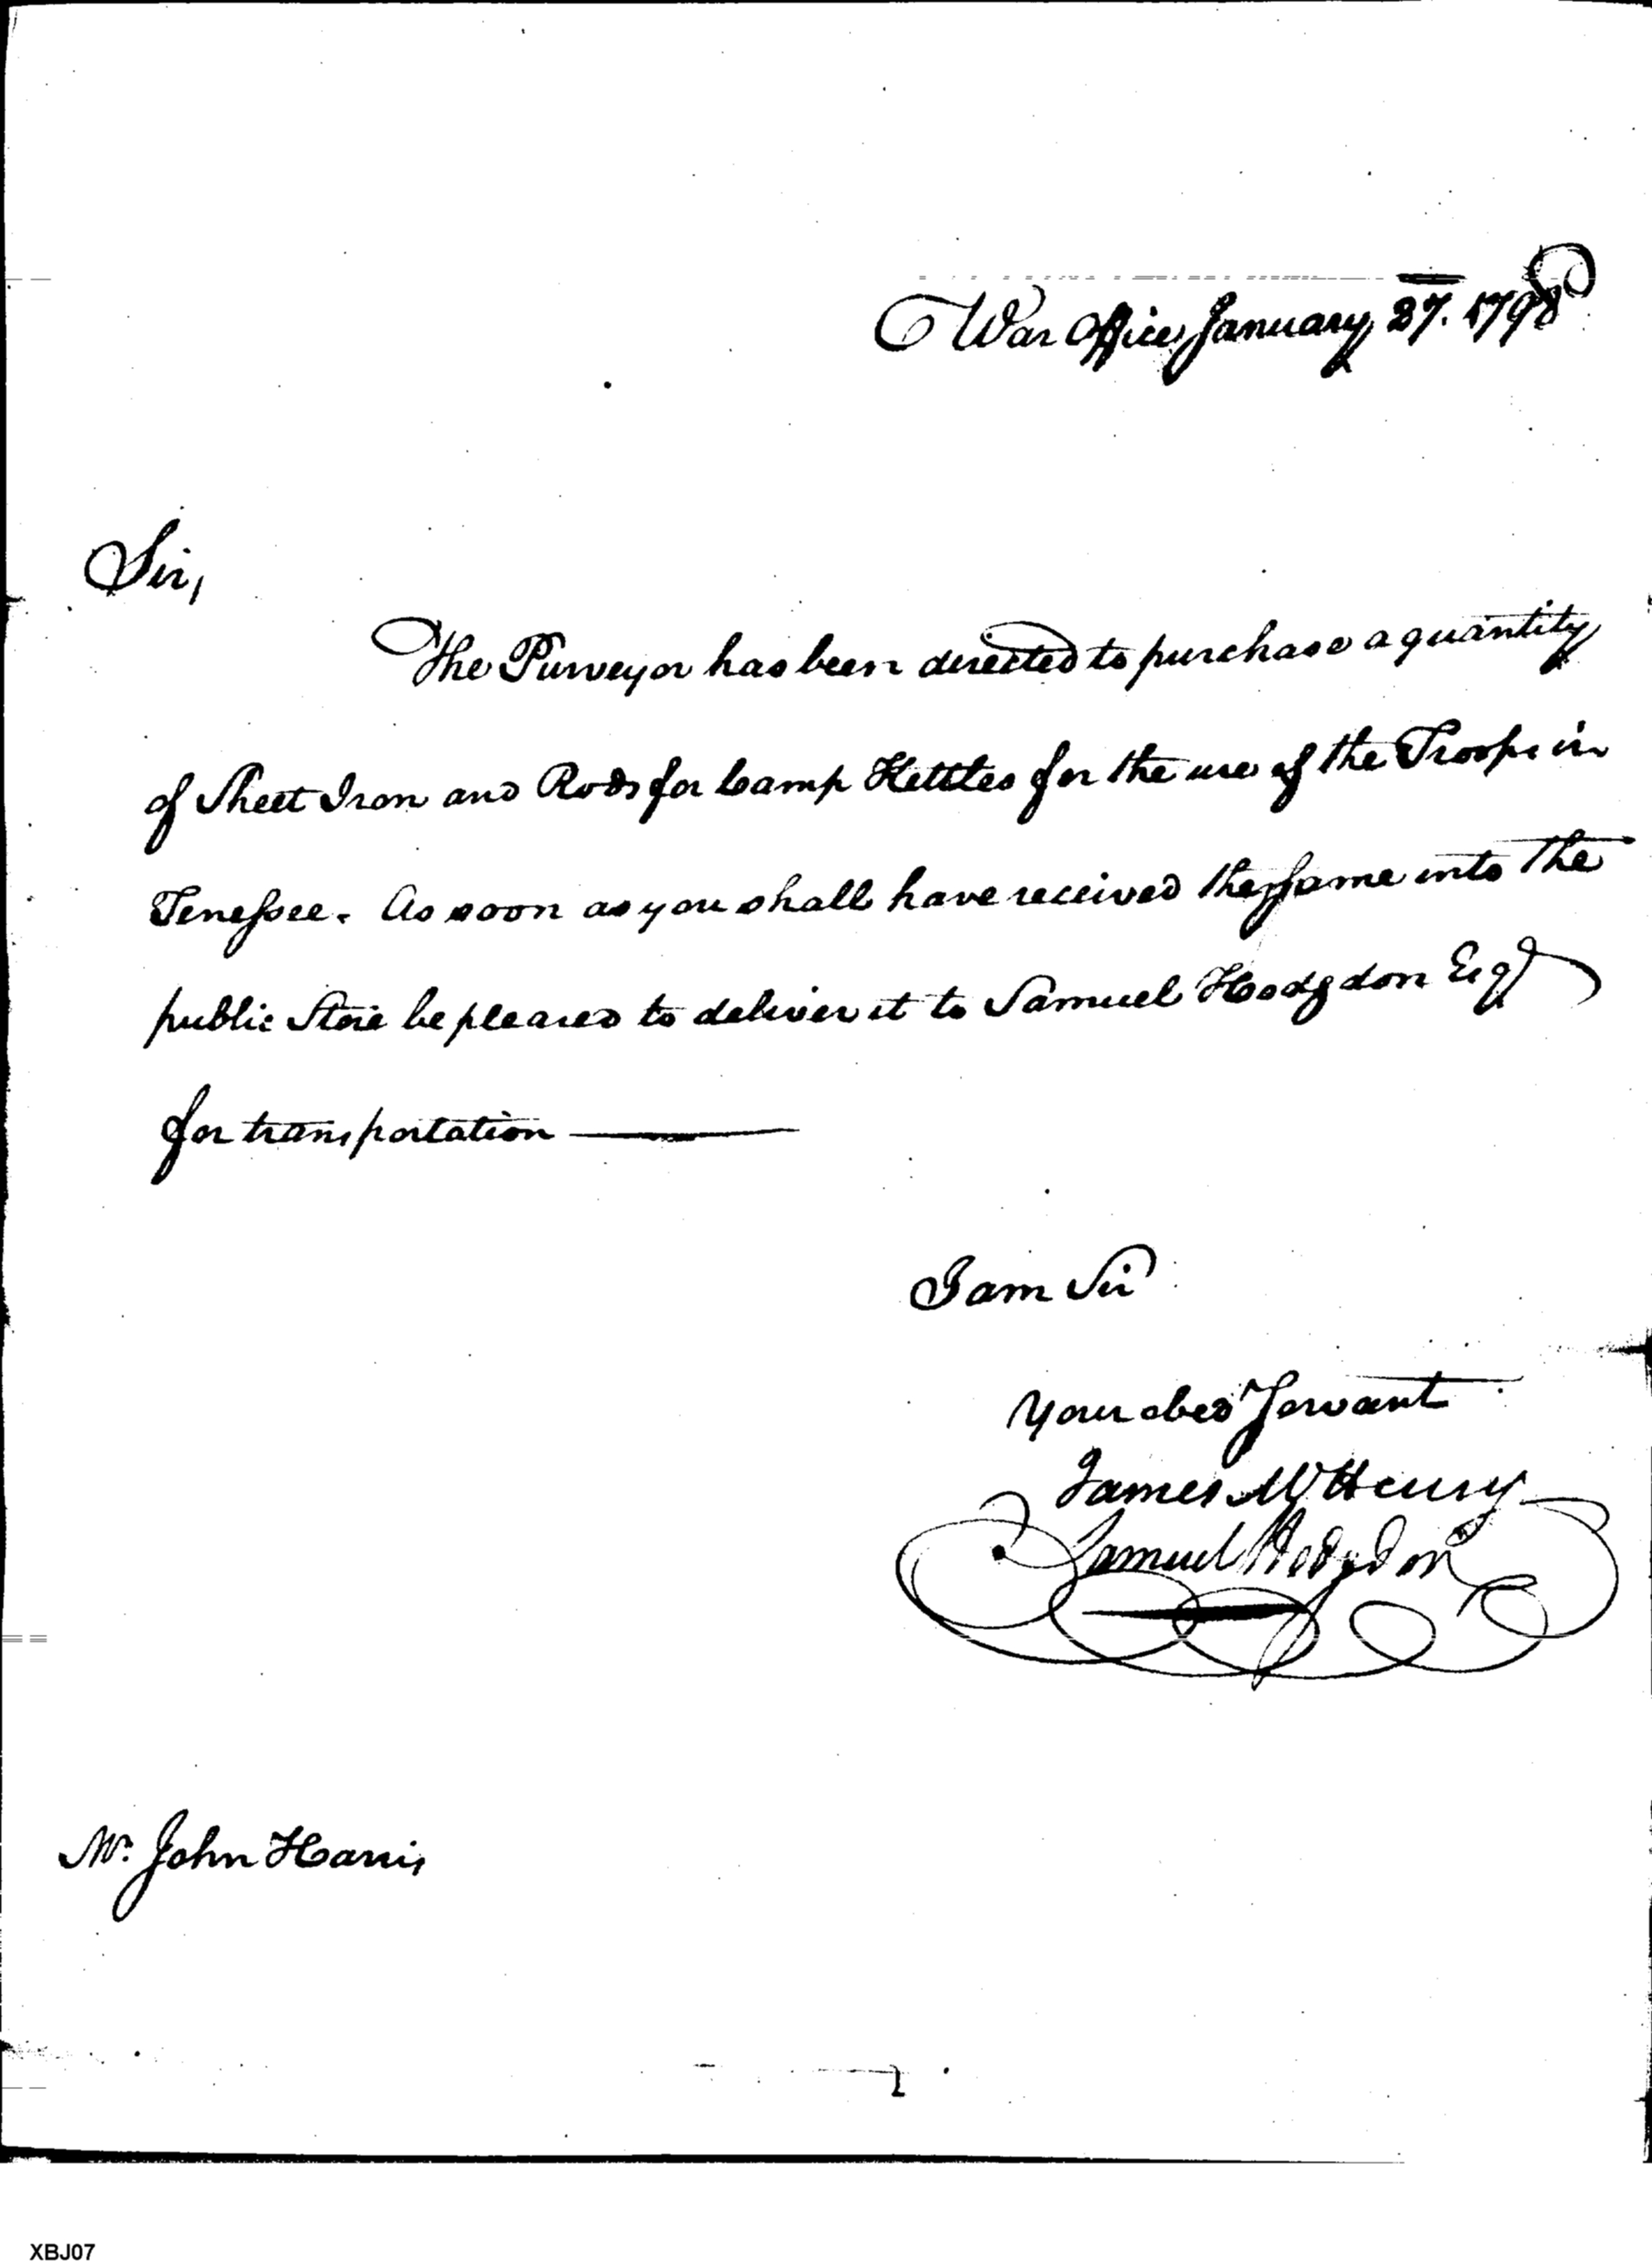 War Office January 27. 1798
Sir,
The Purveyor has been directed to purchase a quantity
of Sheet Iron and Rods for Camp Kettles for the use of the Troops in
Tenessee. As soon as you shall have received the same into the
public Store be pleased to deliver it to Samuel Hodgdon Esqr
for transportation
I am Sir
Your obed Servant
James McHenry
Samuel Hodgdon
Mr. John Harris
XBJ07